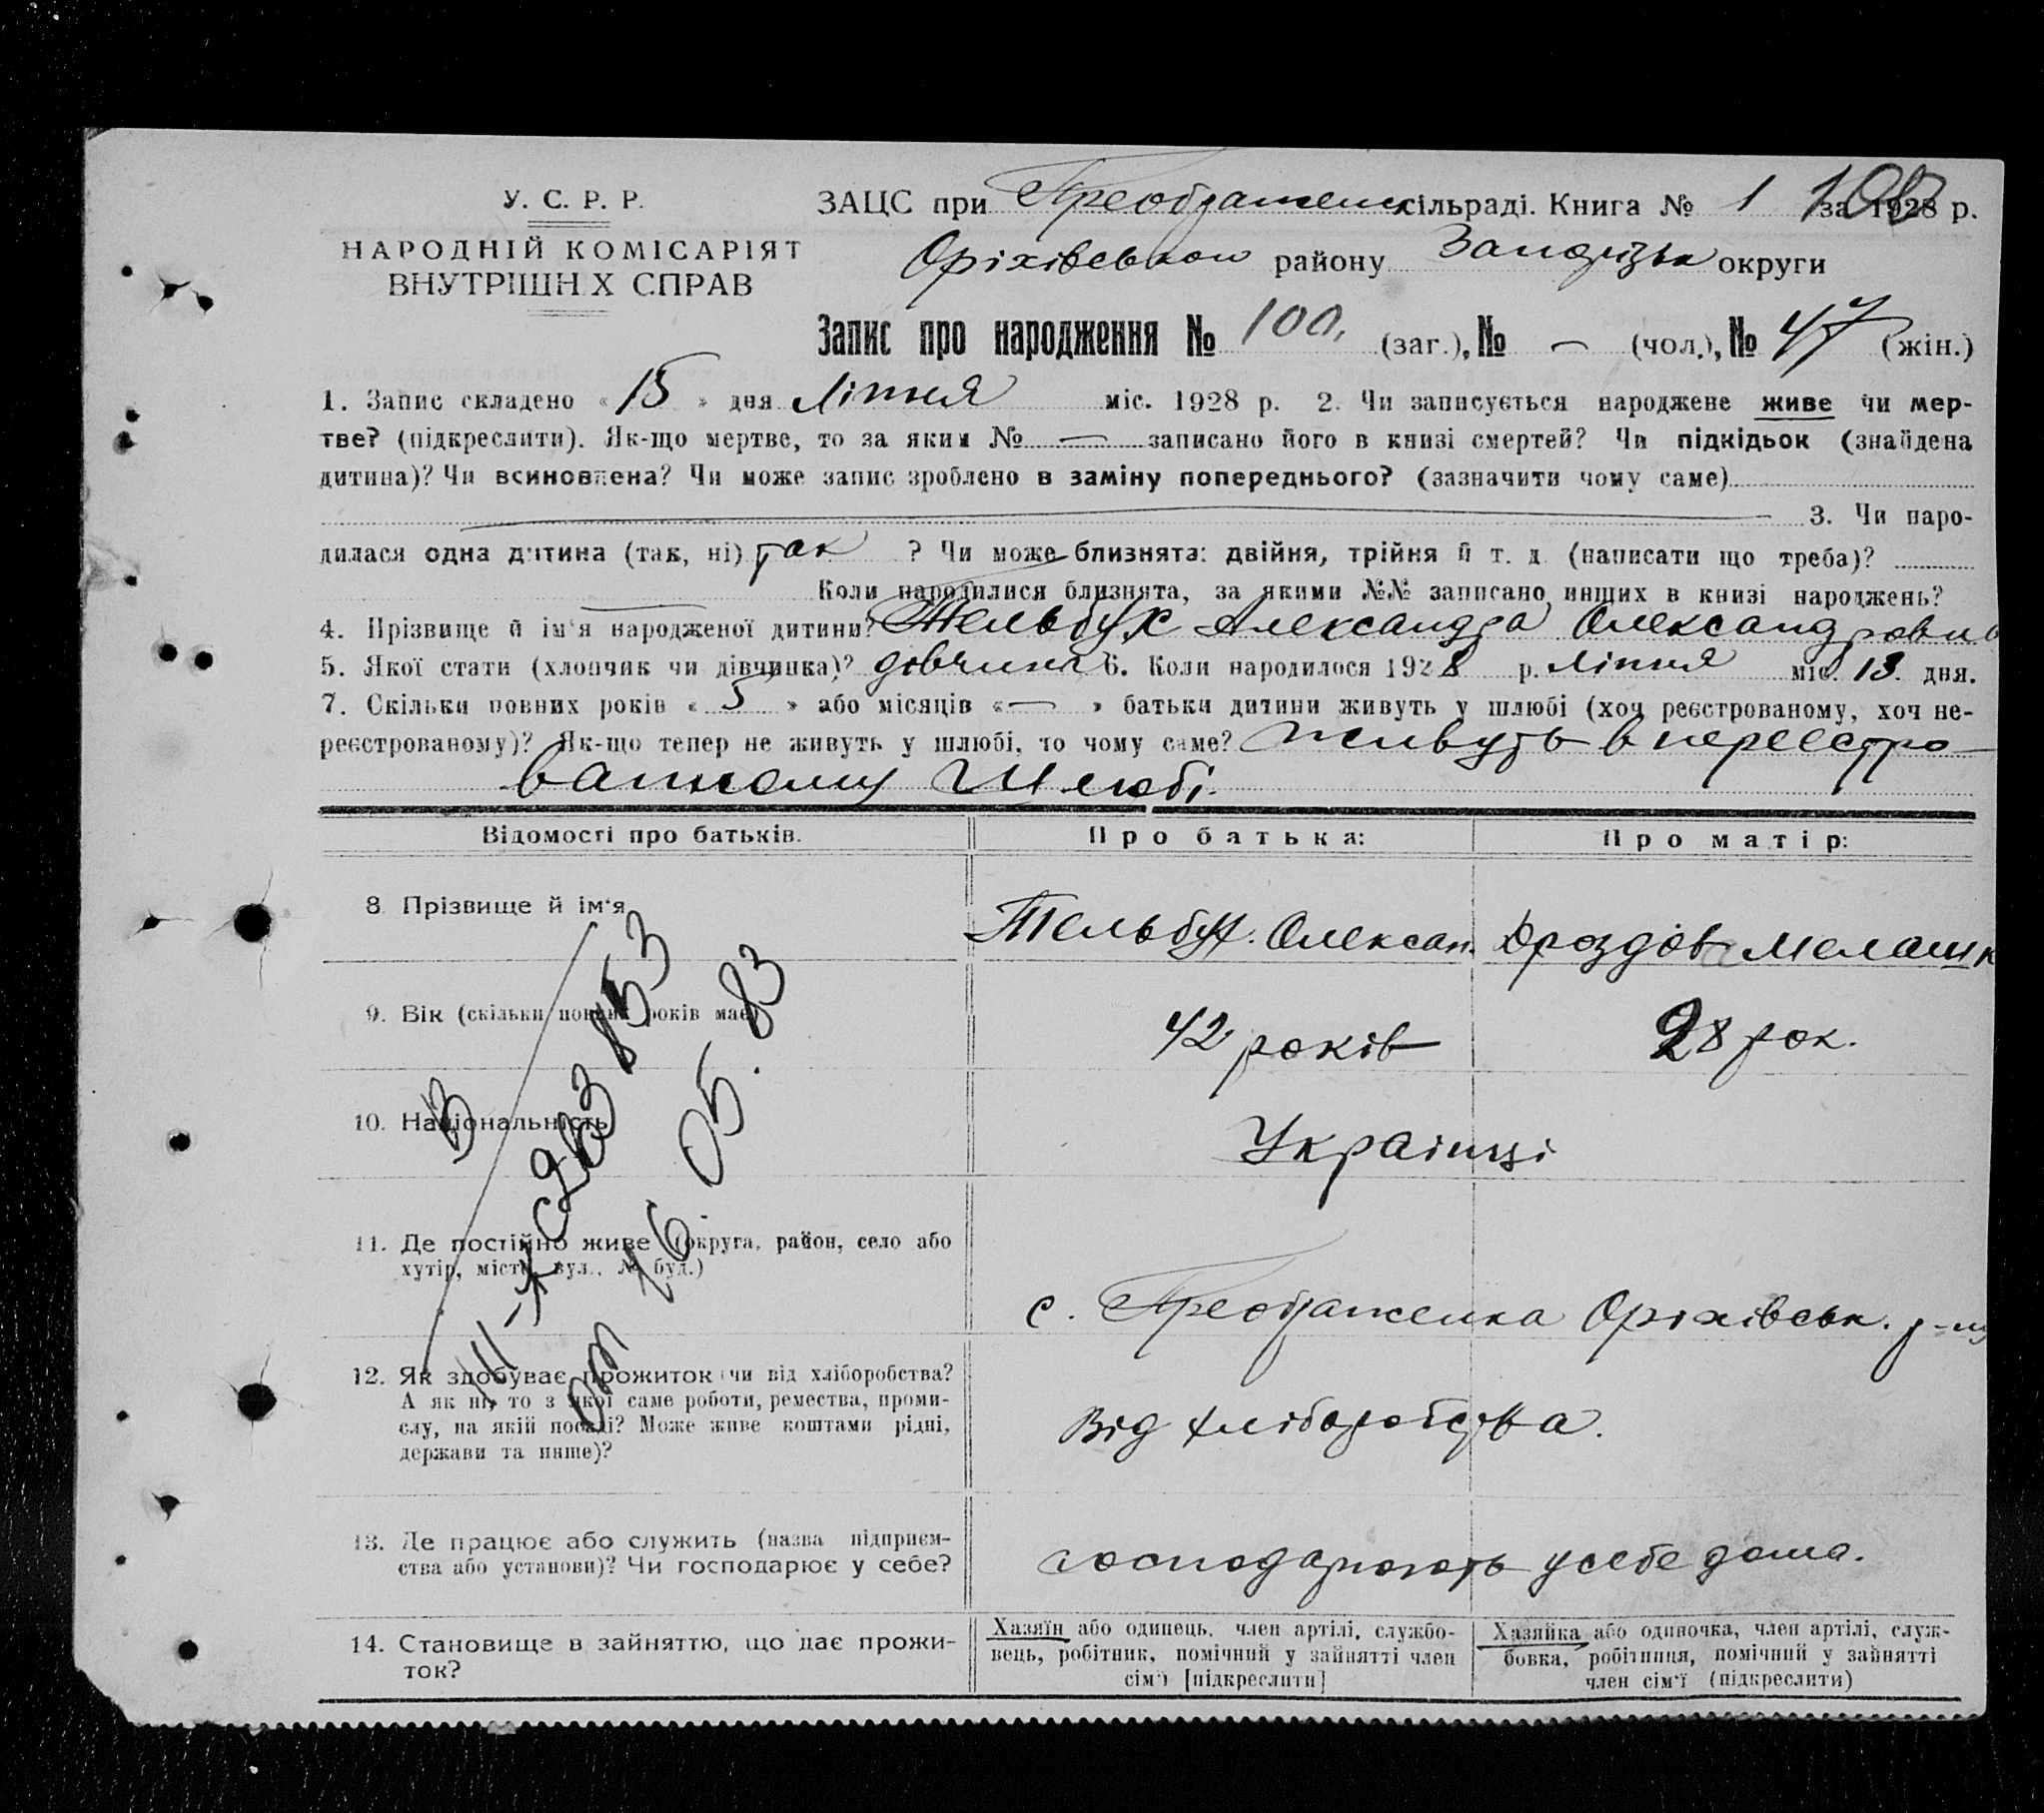 У. С. Р. Р.
НАРОДНІЙ КОМІСАРІЯТ
ВНУТРІШН Х СПРАВ
ЗАЦС при Преображенк сільраді. Книга № 1 за 1928 р.
100
Оріхівськой району Запорізьк округи
Запис про народження № 100. (заг.), № — (чол.), № 47 (жін.)
1. Запис складено « 15 » дня Ліпня міс. 1928 р. 2. Чи записується народжене живе чи мер-
тве? (підкреслити). Як-що мертве, то за яким № — записано його в книзі смертей? Чи підкідьок (знайдена
дитина)? Чи всиновлена? Чи може запис зроблено в заміну попереднього? (зазначити чому саме)
3. Чи наро-
дилася одна дитина (так, ні) так ? Чи може близнята: двійня, трійня й т. д. (написати що треба)?
Коли народилися близнята, за якими №№ записано инших в книзі народжень?
4. Прізвище й ім'я народженої дитини? Тельбух Александра Олександровн
5. Якої стати (хлопчик чи дівчинка)? дівчина 6. Коли народилося 1928 р. Ліпня міс. 13. дня.
7. Скільки повних років « 5 » або місяців « — » батьки дитини живуть у шлюбі (хоч реєстрованому, хоч не-
реєстрованому)? Як-що тепер не живуть у шлюбі, то чому саме? Живуть в нереєстро-
ванному Шлюбі.
Відомості про батьків. Про батька: Про матір:
8. Прізвище й ім'я Тельбух. Олексан. Дроздов Мелашк
9. Вік (скільки повних років має) 42 років 28 рок.
10. Національність Українці
11. Де постійно живе (округа, район, село або
хутір, місто, вул., № буд.)
с. Преображенка Оріхівськ. р-ну
12. Як здобуває прожиток (чи від хліборобства?
А як ні, то з якої саме роботи, ремества, проми-
слу, на якій посаді? Може живе коштами рідні,
держави та инше)?
Від хліборобства.
13. Де працює або служить (назва підприєм-
ства або установи)? Чи господарює у себе?
господарюють у себе дома.
14. Становище в зайняттю, що дає прожи-
ток?
Хазяїн або одинець, член артілі, службо-
вець, робітник, помічний у зайнятті член
сім'ї [підкреслити]
Хазяйка або одиночка, член артілі, служ-
бовка, робітниця, помічний у зайнятті
член сім'ї (підкреслити)
от 16. 05. 83